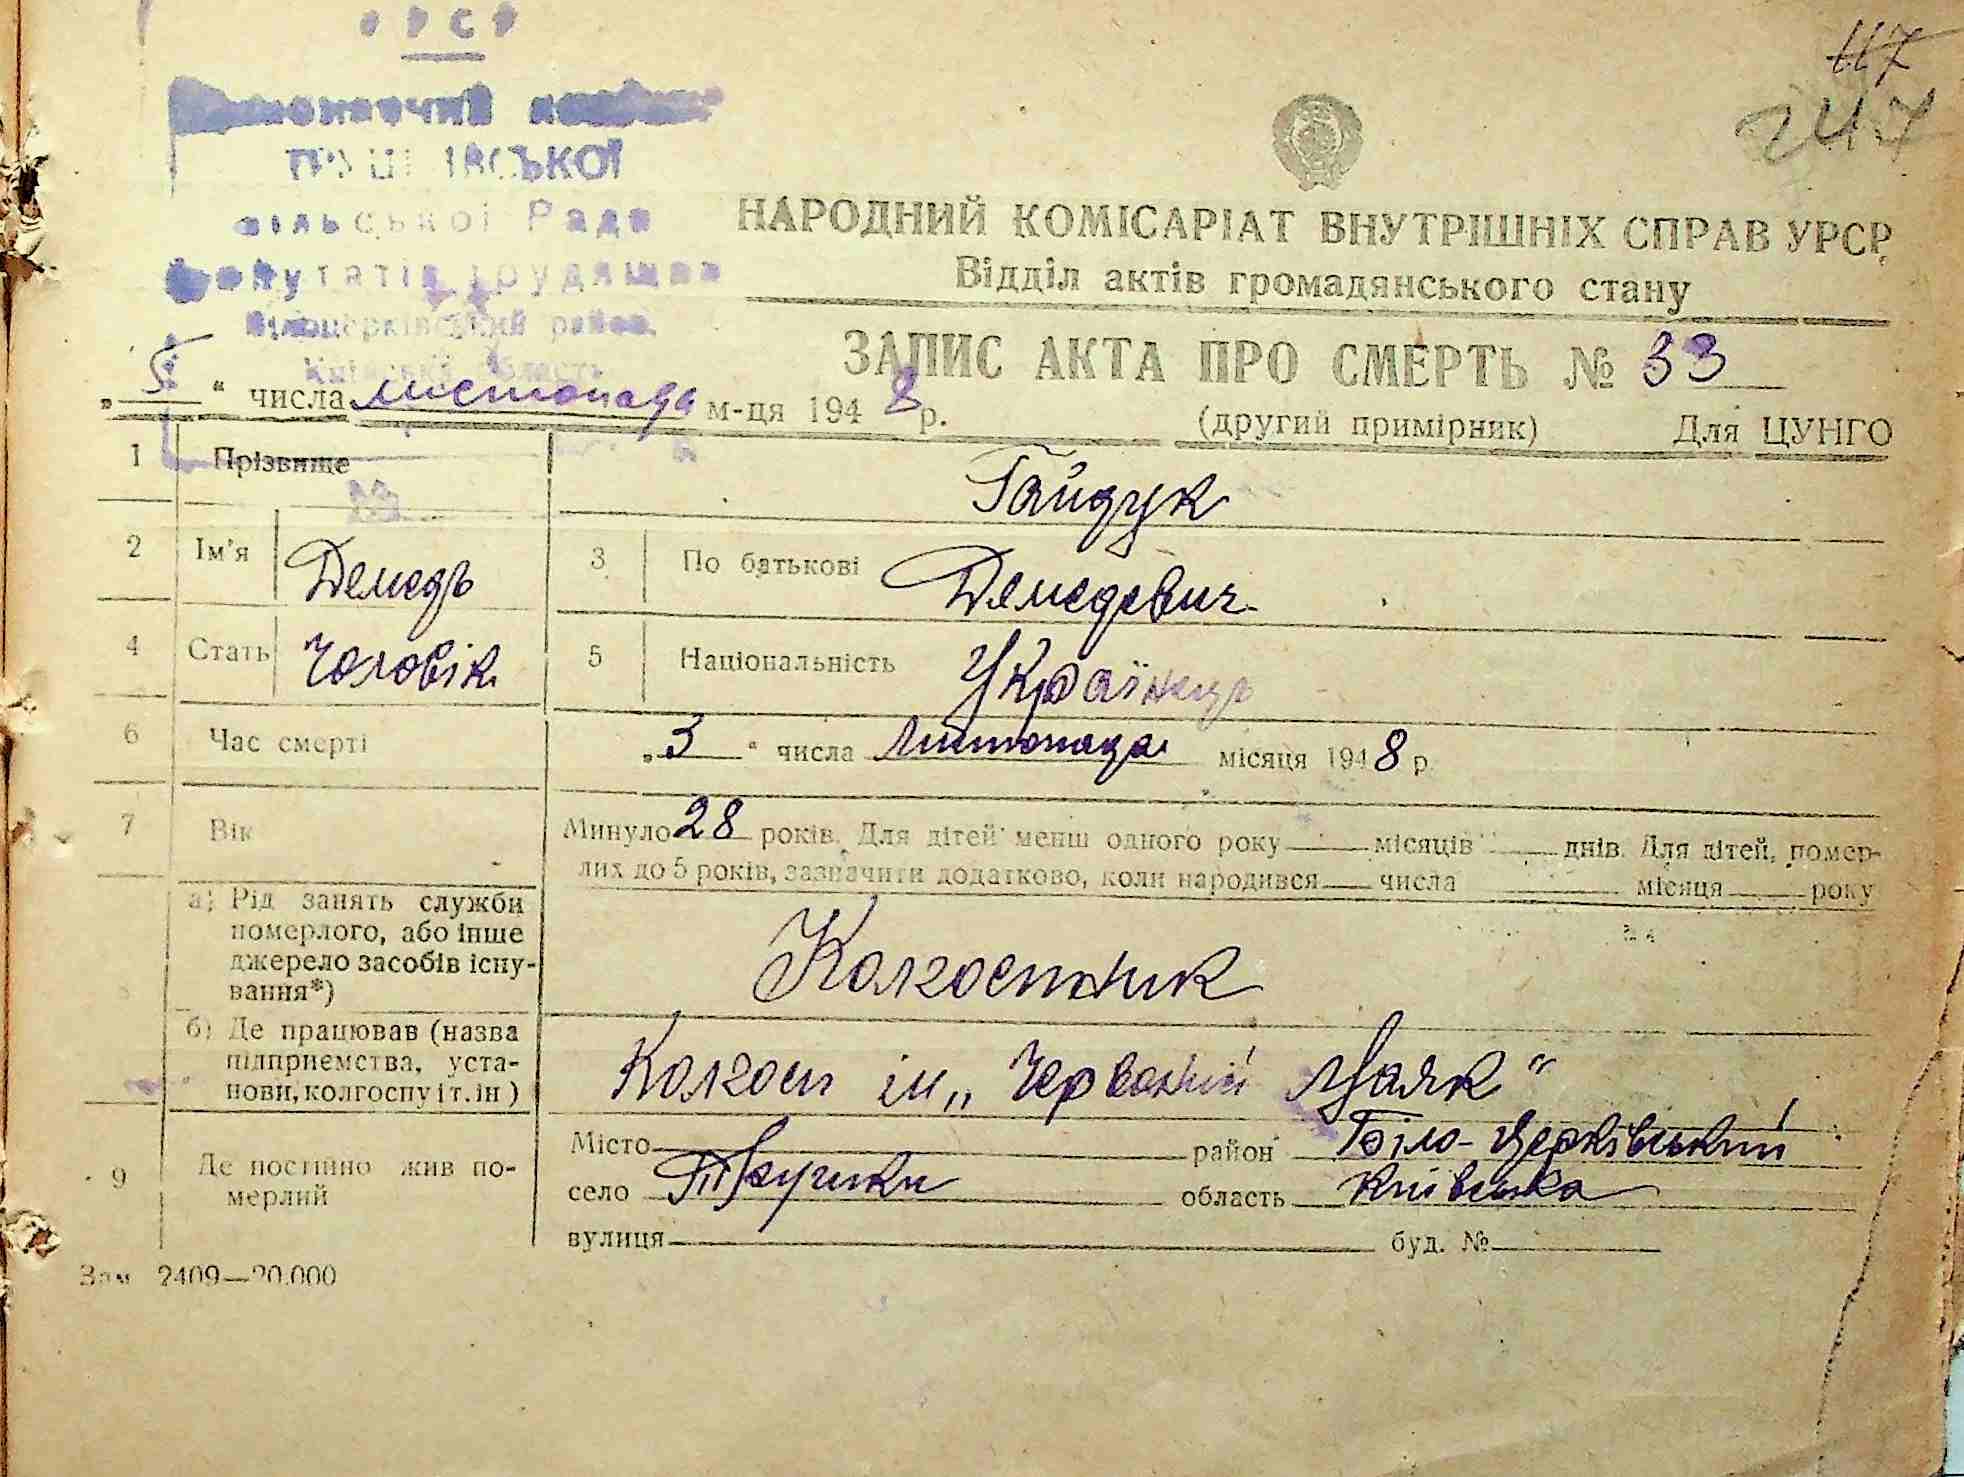 УРСР
Виконавчий комітет
ТРУШКІВСЬКОЇ
сільської Ради
депутатів трудящих
Білоцерківський район,
Київська область
117
247
НАРОДНИЙ КОМІСАРІАТ ВНУТРІШНІХ СПРАВ УРСР
Відділ актів громадянського стану
ЗАПИС АКТА ПРО СМЕРТЬ № 33
„5“ числа листопада м-ця 1948 р.
(другий примірник) Для ЦУНГО
1 Прізвище Гайдук
2 Ім'я Демедь 3 По батькові Демедевич
4 Стать Чоловік 5 Національність Українець
6 Час смерті „3“ числа листопада місяця 1948 р
7 Вік Минуло 28 років. Для дітей менш одного року місяців днів. Для дітей, помер-
лих до 5 років, зазначити додатково, коли народився числа місяця року
8 а) Рід занять служби
померлого, або інше
джерело засобів існу-
вання*)
Колгоспник
б) Де працював (назва
підприємства, уста-
нови, колгоспу і т. ін)
Колгосп ім „Червоний Маяк"
9 Де постійно жив по-
мерлий
Місто район Біло-Церківський
село Трушки область Київська
вулиця буд. №
Зам 2409—20.000